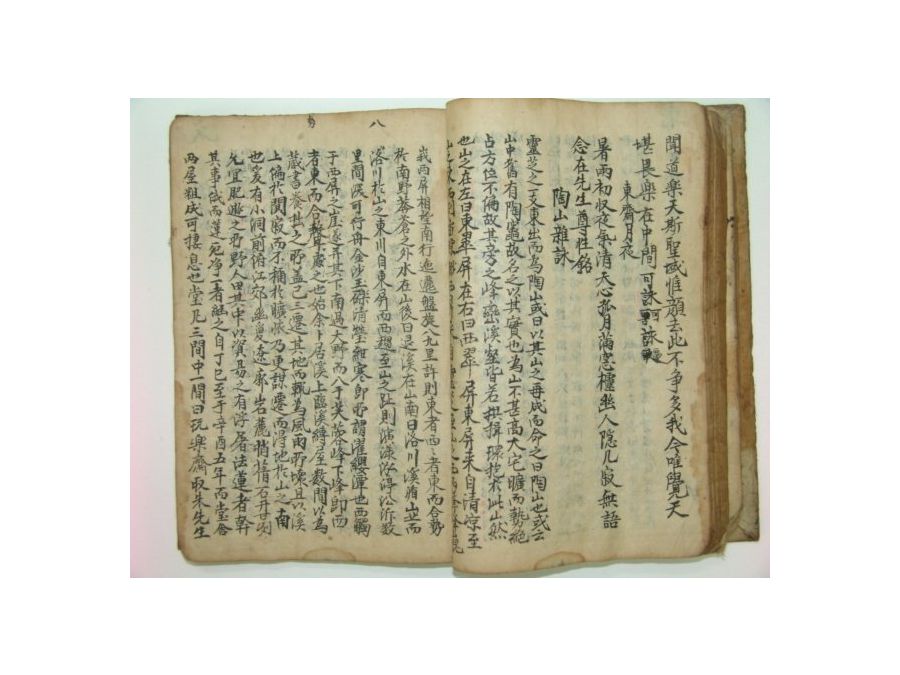 聞道楽天斯聖域惟顔去此不争多我今唯覺天
堪畏樂在中間可詠歌
東齋月夜
暑雨初収夜氣清天心孤月滿窓欞幽人隠几寂無語
念在先生尊性銘
陶山雜詠
靈芝之一支東出而為陶山或曰以其山之再成而命之曰陶山也或云
山中舊有陶竈故名之以其實也為山不甚高大宅曠而勢絶
占方位不偏故其旁之峰巒溪壑皆若拱揖環抱於此山然
也山之在左曰東翠屏在右曰西翠屏東屏來自清凉至
八
峩西屏相望南行迤邐盤旋八九里許則東者西々者東而合勢
於南野莽蒼之外水在山後曰退溪在山南曰洛川溪循山立而
洛川於山之東川自東屏而西趨至山之趾則演漾泓渟沿泝数
里間深可行舟金沙玉礫清瑩紺寒即所謂濯纓潭也西觸
于西屏之崖遂并其下南過大野而入于芙蓉峰下峰即西
者東而合勢之處也始余卜居溪上臨溪縛屋数間以為
蔵書養拙之所盖已三遷其地而輒為風雨所壊且以溪
上偏於闃寂而不稱於曠懷乃更謀遷而得地於山之南
也爰有小洞前俯江郊幽夐遼廓岩麓悄蒨石井甘冽
允宜肥遯之所野人田其中以資易之有浮屠法蓮者幹
其事俄而蓮死净一者継之自丁巳至于辛酉五年而堂舍
両屋粗成可棲息也堂凡三間中一間曰玩樂齋取朱先生